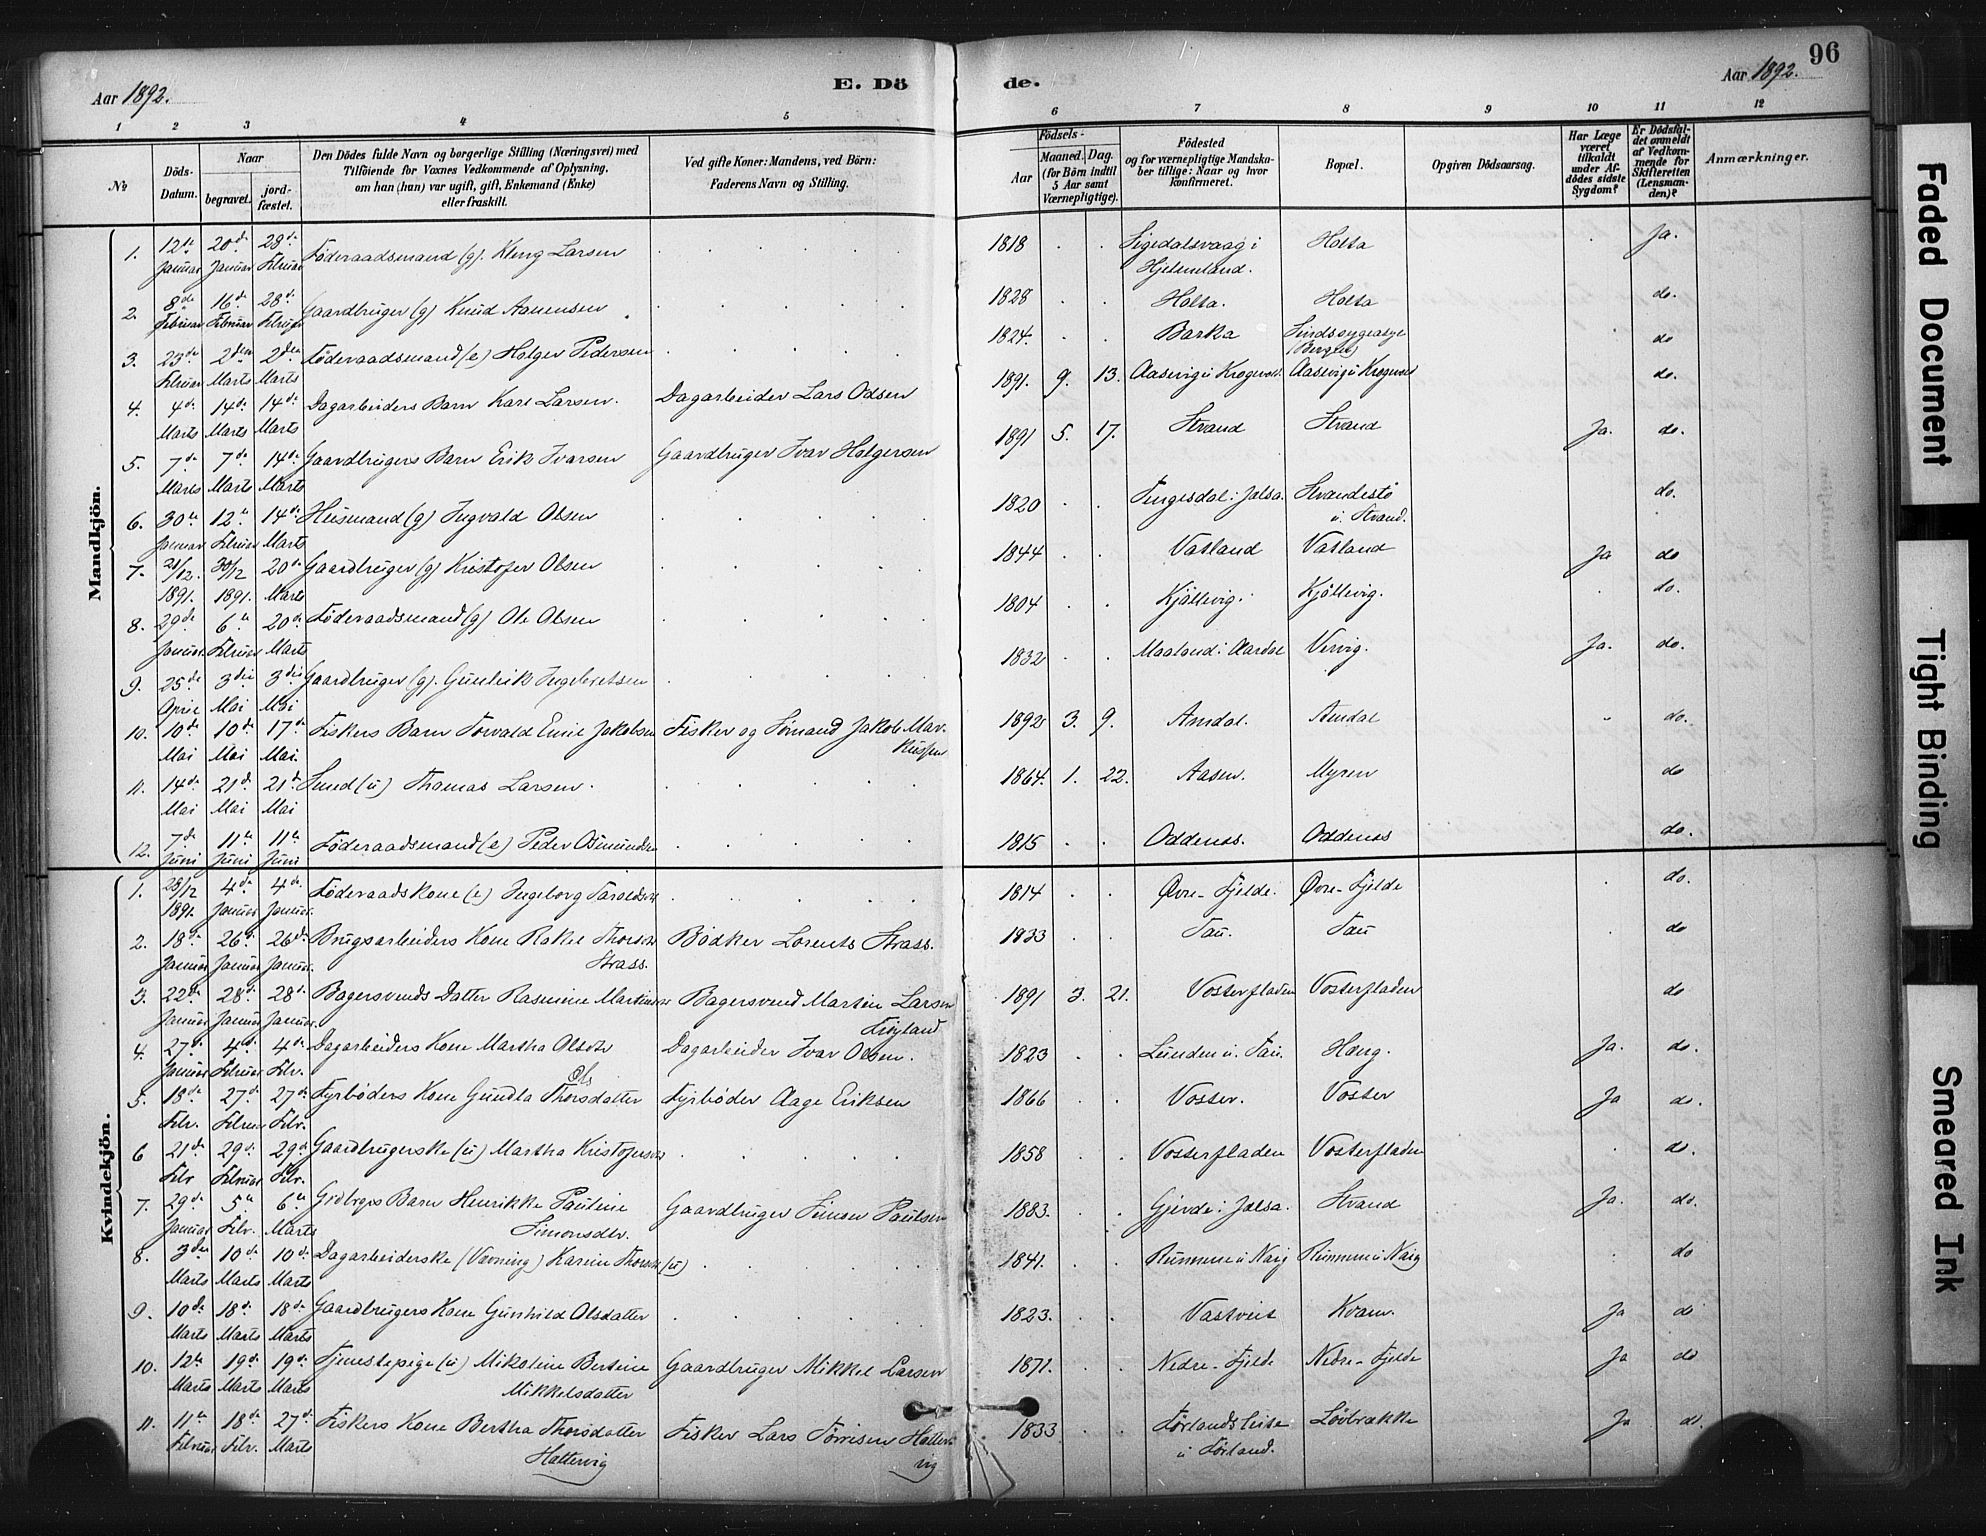 96
Aar 1892.
E. Dö de.
Aar 1892.
1 2 3 4 5 6 7 8 9 10 11 12
No
Döds-Datum.
Naar
begravet.
jord-fæstet.
Den Dödes fulde Navn og borgerlige Stilling (Næringsvei) med
Tilföiende for Voxnes Vedkommende af Oplysning,
om han (hun) var ugift, gift, Enkemand (Enke)
eller fraskilt.
Ved gifte Koner: Mandens, ved Börn:
Faderens Navn og Stilling.
Födsels-
Aar
Maaned. Dag.
(for Börn indtil
5 Aar samt
Værnepligtige).
Födested
og for værnepligtige Mandska-
ber tillige: Naar og hvor
konfirmeret.
Bopæl.
Opgiven Dödsaarsag.
Har Læge
været
tilkaldt
under Af-
dödes sidste
Sygdom?
Er Dödsfal-
det anmeldt
af Vedkom-
mende for
Skifteretten
(Lensman-
den)?
Anmærkninger.
Mandkjön.
1. 12te Januar 20de Januar 28de Februar Föderaadsmand (g). Kleng Larsen 1818 Tigedalsvaag i Hjelmeland. Holta Ja.
2. 8de Februar 16de Februar 28de Februar Gaardbruger (g) Knud Aanensen 1828 Holta. Holta do.
3. 23de Februar 2den Marts 2den Marts Föderaadsmand (e) Holger Pedersen 1824. Barka Sindssygeasyl (Bergen) do
4. 4de Marts 14de Marts 14de Marts Dagarbeiders Barn Karl Larsen. Dagarbeider Lars Odsen 1891. 9. 13. Aasevig u Krogevold. Aasevig u Krogevold do.
5. 7de Marts 7de Marts 14de Marts Gaardbrugers Barn Erik Ivarsen Gaardbruger Ivar Holgersen 1891 5. 17. Strand Strand Ja. do.
6. 30te Januar 12te Februar 14de Marts Husmand (g) Ingvald Olsen 1820 Tengesdal i Jelsa. Strandestö u. Strand. do.
7. 21/12. 1891. 30/12 1891. 20de Marts Gaardbruger (g) Kristofer Olsen 1844 Vatland Vatland Ja do
8. 29de Januar. 6te Februar 20de Marts Föderaadsmand (g) Ole Olsen 1804 Kjöllevig. Kjöllevig. do.
9. 25de April 3die Mai 3die Mai Gaardbruger (g). Gunleik Ingebretsen 1832 Maaland i Aardal Vervig. Ja. do.
10. 10de Mai 10de Mai 17de Mai. Fiskers Barn Torvald Emil Jakobsen Fisker og Sömand Jakob Mar-
kussen 1892 3. 9. Amdal. Amdal do.
11. 14de Mai 21de Mai 21de Mai Smed (u) Thomas Larsen. 1864. 1. 22. Aasen. Myren do
12. 7de Juni 11te Juni 11te Juni Föderaadsmand (e) Peder Osmundsen 1815 Oddenes. Oddenes do.
Kvindekjön.
1. 28/12 1891 4de Januar 4de Januar. Föderaadskone (e) Ingeborg Taroldsdtr 1814 Øvre-Fjelde. Øvre-Fjelde do.
2. 18de Januar 26de Januar 26de Januar. Brugsarbeiders Kone Rakel Thorsdtr
Strass. Bödker Lorents Strass. 1833 Tau. Tau do
3. 22de Januar 28de Januar 28de Januar. Bagersvends Datter Rasmine Martinsdtr Bagersvend Martin Larsen
Fröyland 1891 3. 21. Vosterfladen Vosterfladen do
4. 27de Januar 4de Februar 4de Febr. Dagarbeiders Kone Martha Olsdtr Dagarbeider Ivar Olsen. 1823 Lunden u. Tau. Haug. Ja. do.
5. 18de Febr. 27de Februar 27de Febr. Fyrböders Kone Gundla Thorsdatter Ols Fyrböder Aage Eriksen 1866 Voster. Voster Ja do.
6 21de Febr 29de Februar 29de Febr. Gaardbrugerske (u) Martha Kristofersdtr 1858 Vosterfladen Vosterfladen do.
7. 29de Januar 5te Febr. 6te Marts Grdbrgs Barn Henrikke Pauline
Simonsdtr. Gaardbruger Simon Paulsen 1883. Gjerde i Jelsa. Strand Ja. do.
8. 3die Marts 10de Marts 10de Marts Dagarbeiderske (Vævning) Karine Thorsdtr (u) 1841. Rummene u Nag Rummene u Nag do
9. 10de Marts 18de Marts 18de Marts Gaardbrugers Kone Gunhild Olsdatter 1823. Vastveit Kvam. Ja do
10. 12te Marts 19de Marts 19de Marts Tjenestepige (u) Mikoline Bertine
Mikkelsdatter Gaardbruger Mikkel Larsen 1871. Nedre-Fjelde Nedre-Fjelde Ja do
11. 11te Februar 18de Febr. 27de Marts Fiskers Kone Bertha Thorsdatter
Hattervig Fisker Lars Törrisen Hatter-
vig 1833 Förlandsleite u Förland. Lövbrække Ja do.
Faded Document
Tight Binding
Smeared Ink